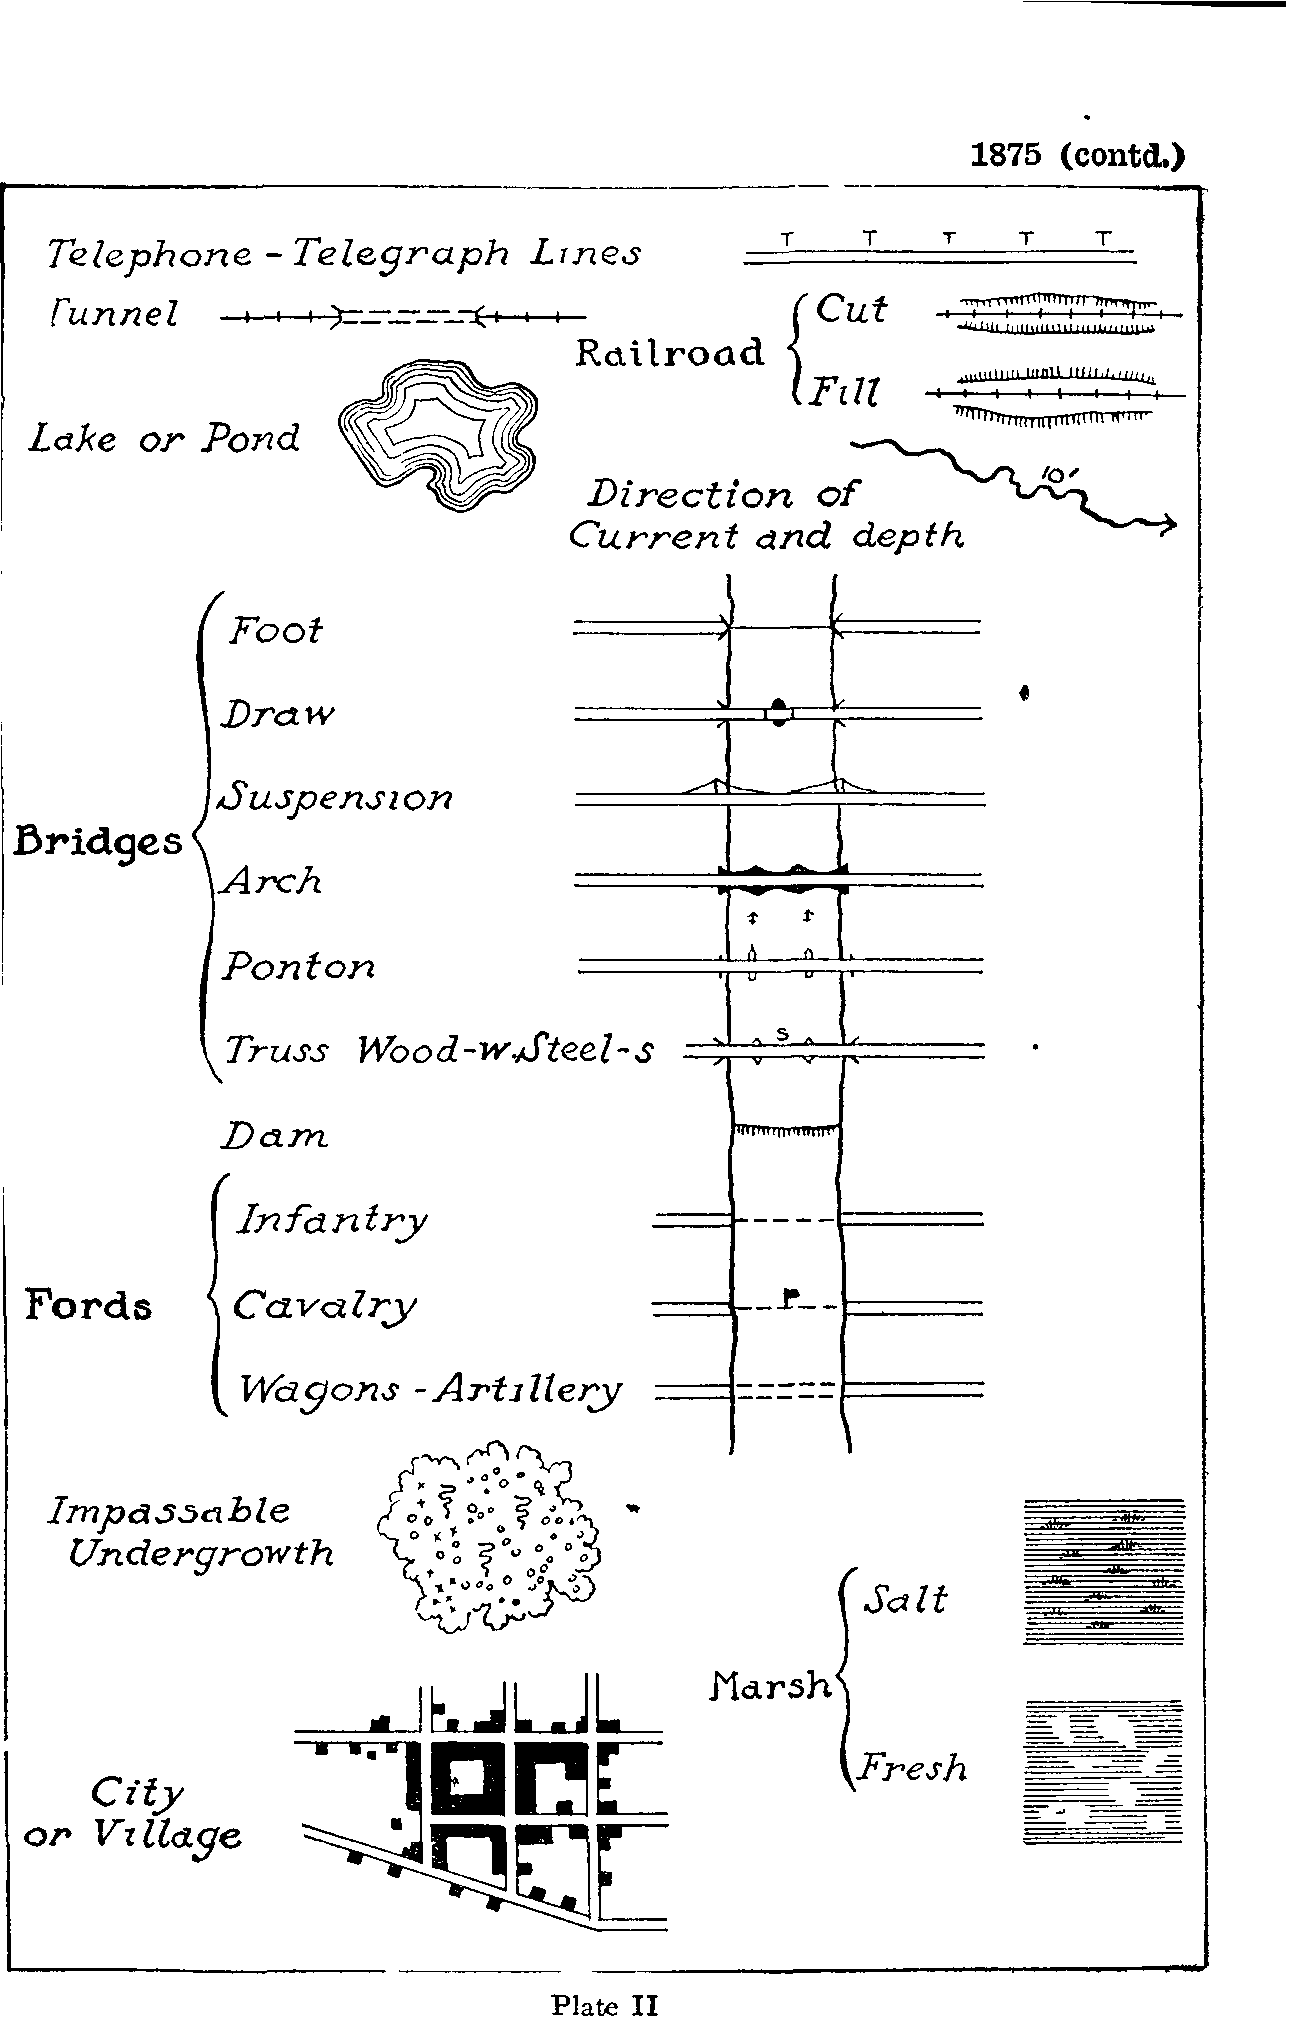 1875 (contd.)
Telephone - Telegraph Lines
T T T T T
Tunnel
Railroad
Cut
Fill
Lake or Pond
10'
Direction of
Current and depth
Bridges
Foot
Draw
Suspension
Arch
Ponton
Truss Wood-w. Steel-s
S
Dam
Fords
Infantry
Cavalry
Wagons - Artillery
Impassable
Undergrowth
Marsh
Salt
Fresh
City
or Village
Plate II